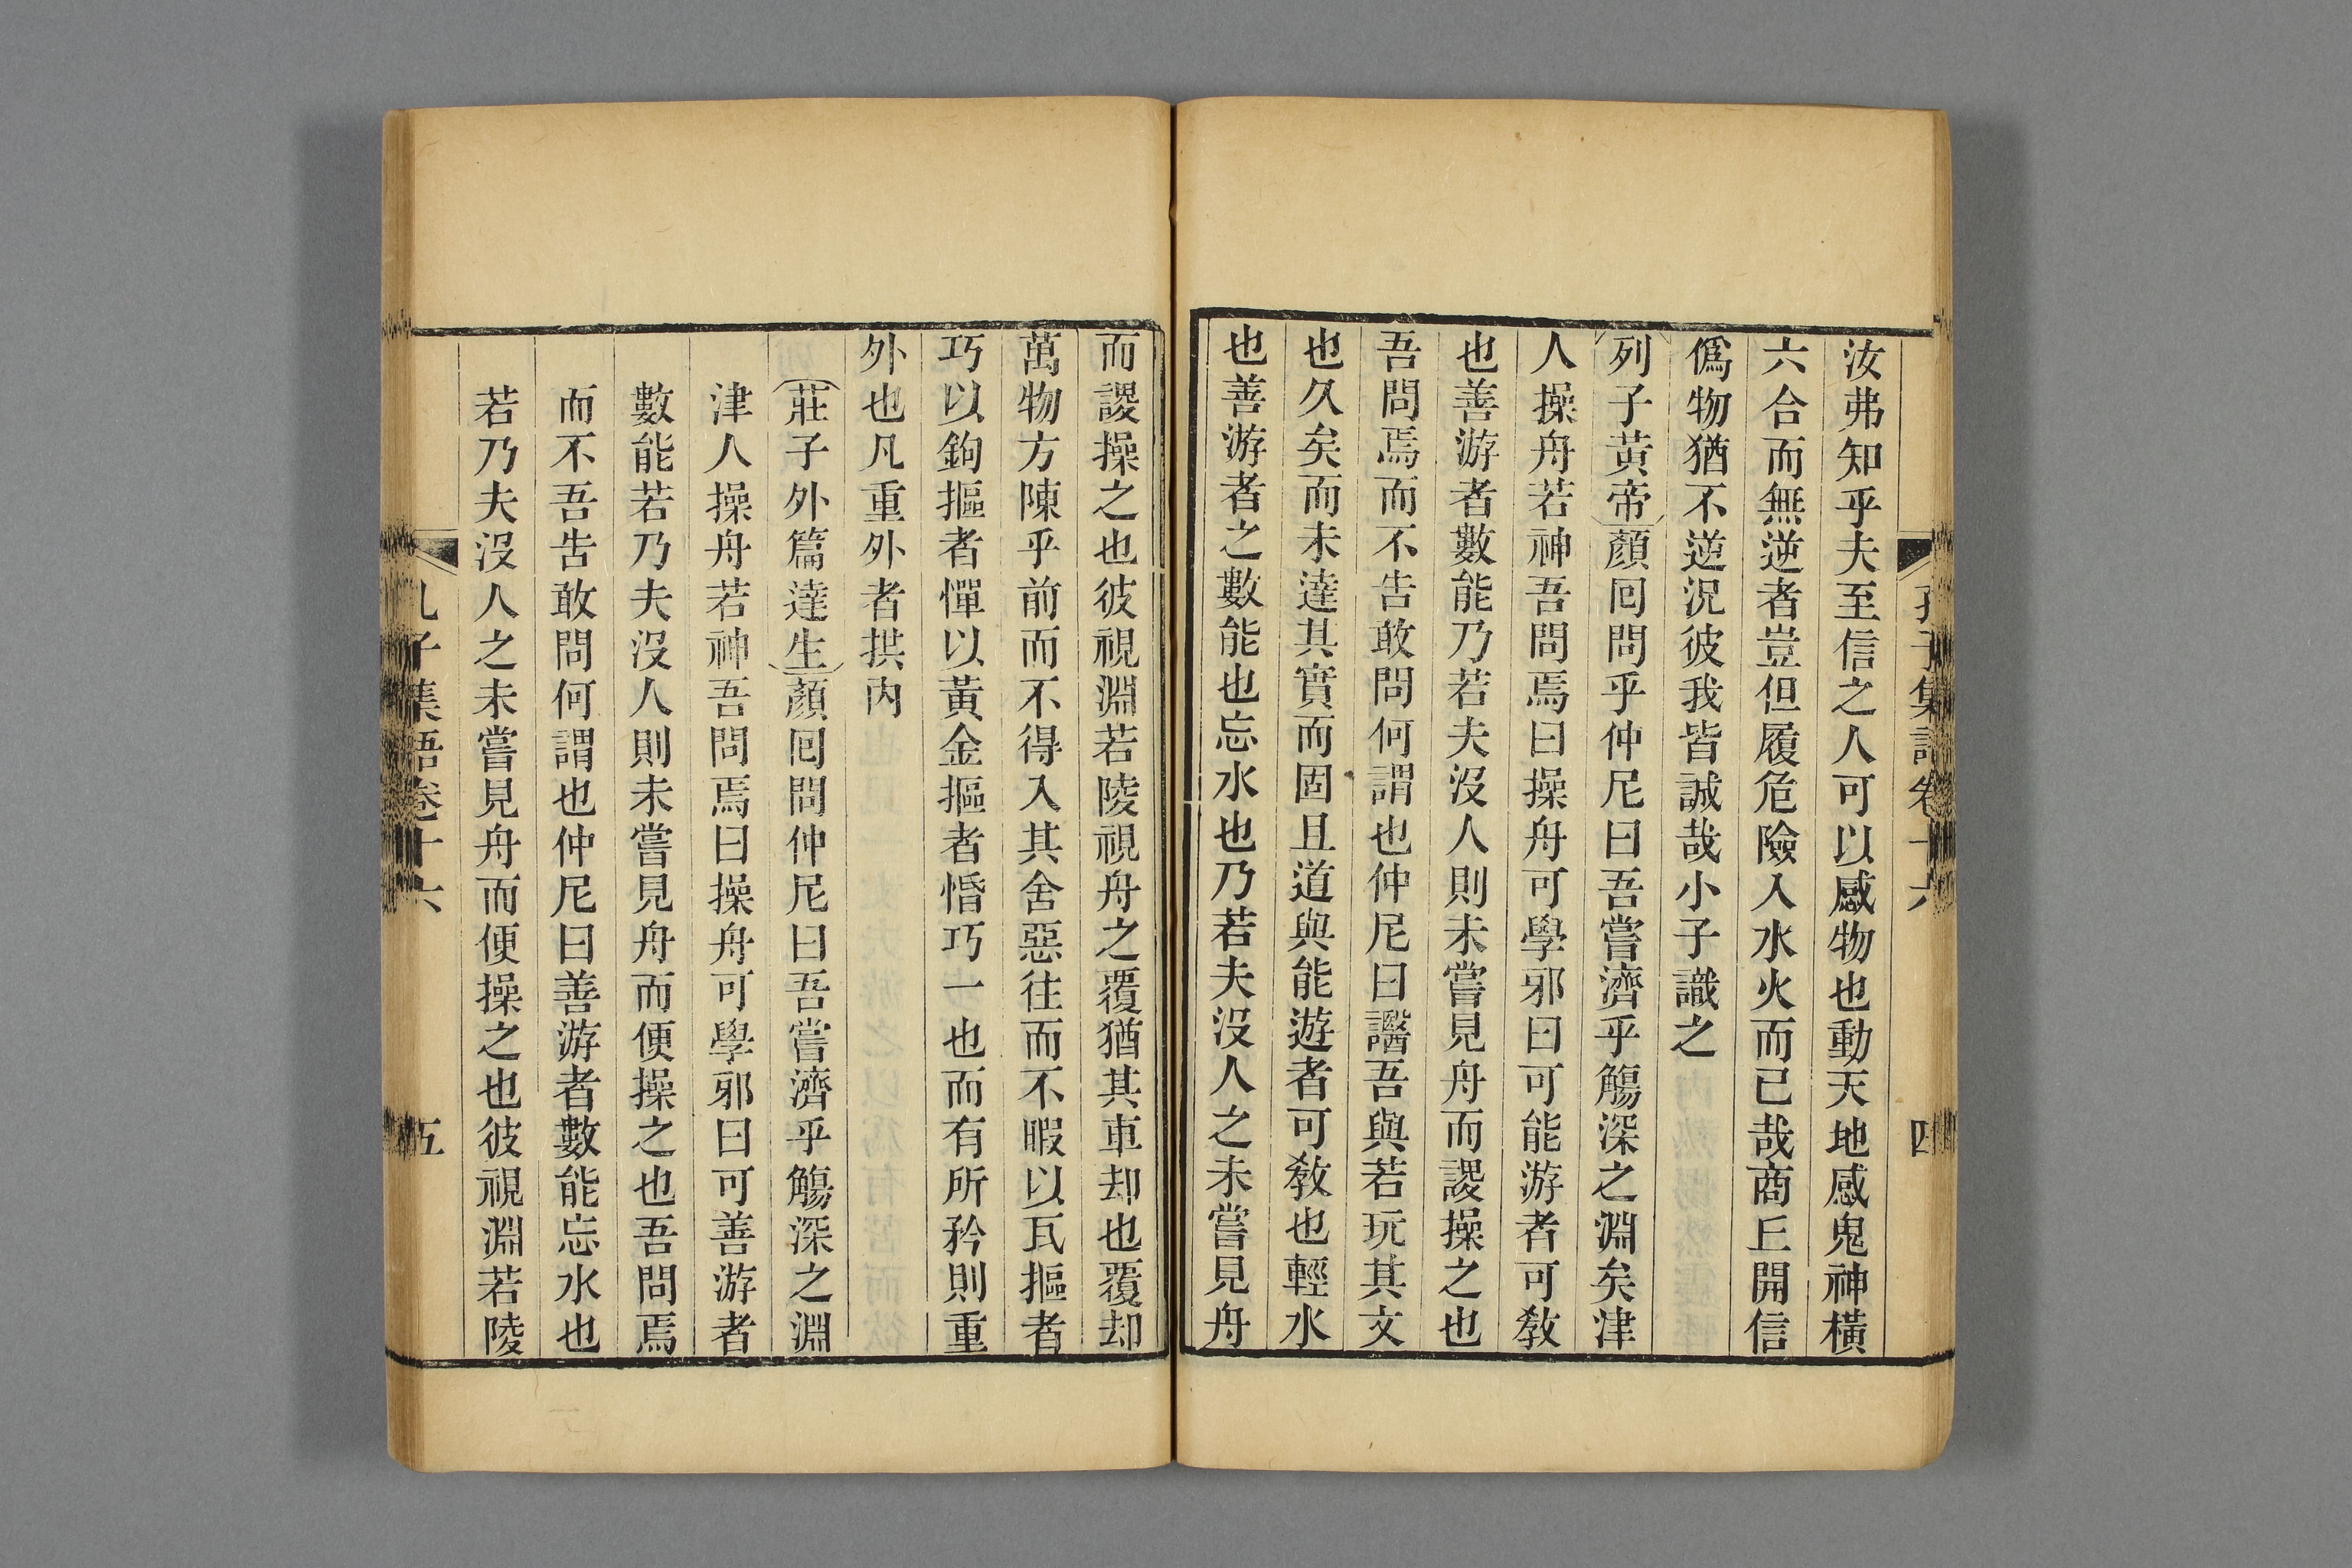 孔子集語卷十六 四
汝弗知乎夫至信之人可以感物也動天地感鬼神橫
六合而無逆者豈但履危險入水火而已哉商丘開信
僞物猶不逆況彼我皆誠哉小子識之
列子黃帝顏囘問乎仲尼曰吾嘗濟乎觴深之淵矣津
人操舟若神吾問焉曰操舟可學邪曰可能游者可敎
也善游者數能乃若夫沒人則未嘗見舟而謖操之也
吾問焉而不告敢問何謂也仲尼曰譩吾與若玩其文
也久矣而未達其實而固且道與能遊者可敎也輕水
也善游者之數能也忘水也乃若夫沒人之未嘗見舟
而謖操之也彼視淵若陵視舟之覆猶其車却也覆却
萬物方陳乎前而不得入其舍惡往而不暇以瓦摳者
巧以鉤摳者憚以黃金摳者惛巧一也而有所矜則重
外也凡重外者拱內
莊子外篇達生顏囘問仲尼曰吾嘗濟乎觴深之淵
津人操舟若神吾問焉曰操舟可學邪曰可善游者
數能若乃夫沒人則未嘗見舟而便操之也吾問焉
而不吾告敢問何謂也仲尼曰善游者數能忘水也
若乃夫沒人之未嘗見舟而便操之也彼視淵若陵
孔子集語卷十六 五